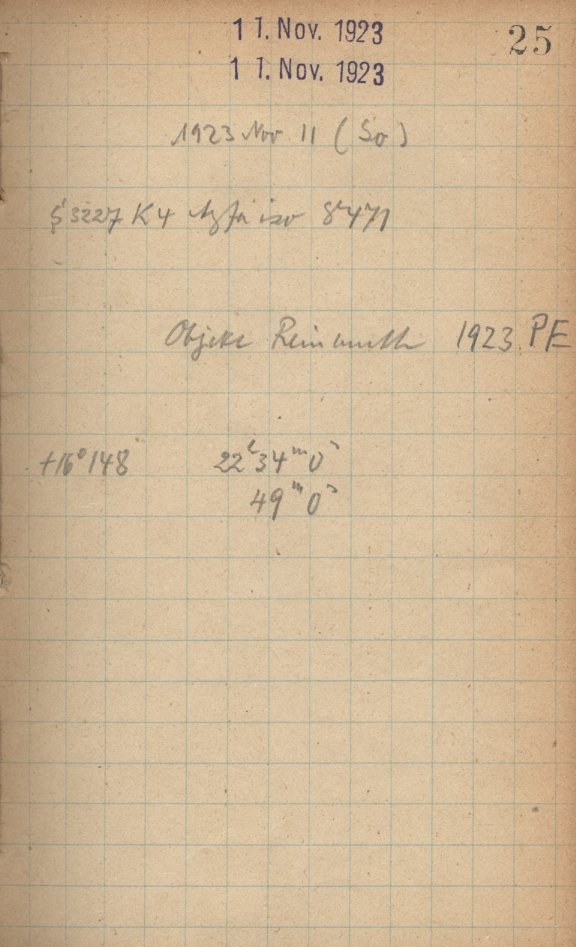 11. Nov. 1923
25
11. Nov. 1923
1923 Nov 11 (So)
3227 K4 Agfa iso 8471
Objekt Reinmuth 1923 PE
+16°148 22ʰ34ᵐ0ˢ
49ᵐ0ˢ